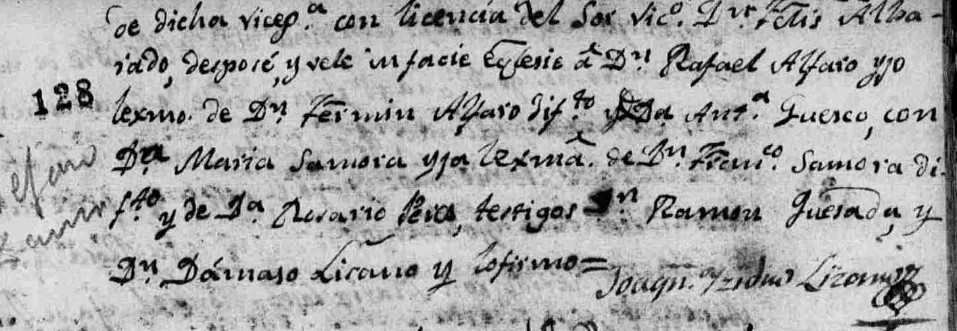 de dicha vicepª. con licencia del Sor Vicº. Dn. Felis Alba-
rado, desposé, y vele in facie Eglesie á Dn. Rafael Alfaro yjo
128 lexmo. de Dn. Fermin Alfaro dif.to y Da Ant.ª Guesco, con
Da Maria Samora yja lexmâ. de Dn. Fran.co Samora di-
f.to y de Dª. Rosario Peres, testigos Dn Ramon Quesada, y
Dn. Dámaso Licano y lo firmo= Joaqn. Yzidro Lizano